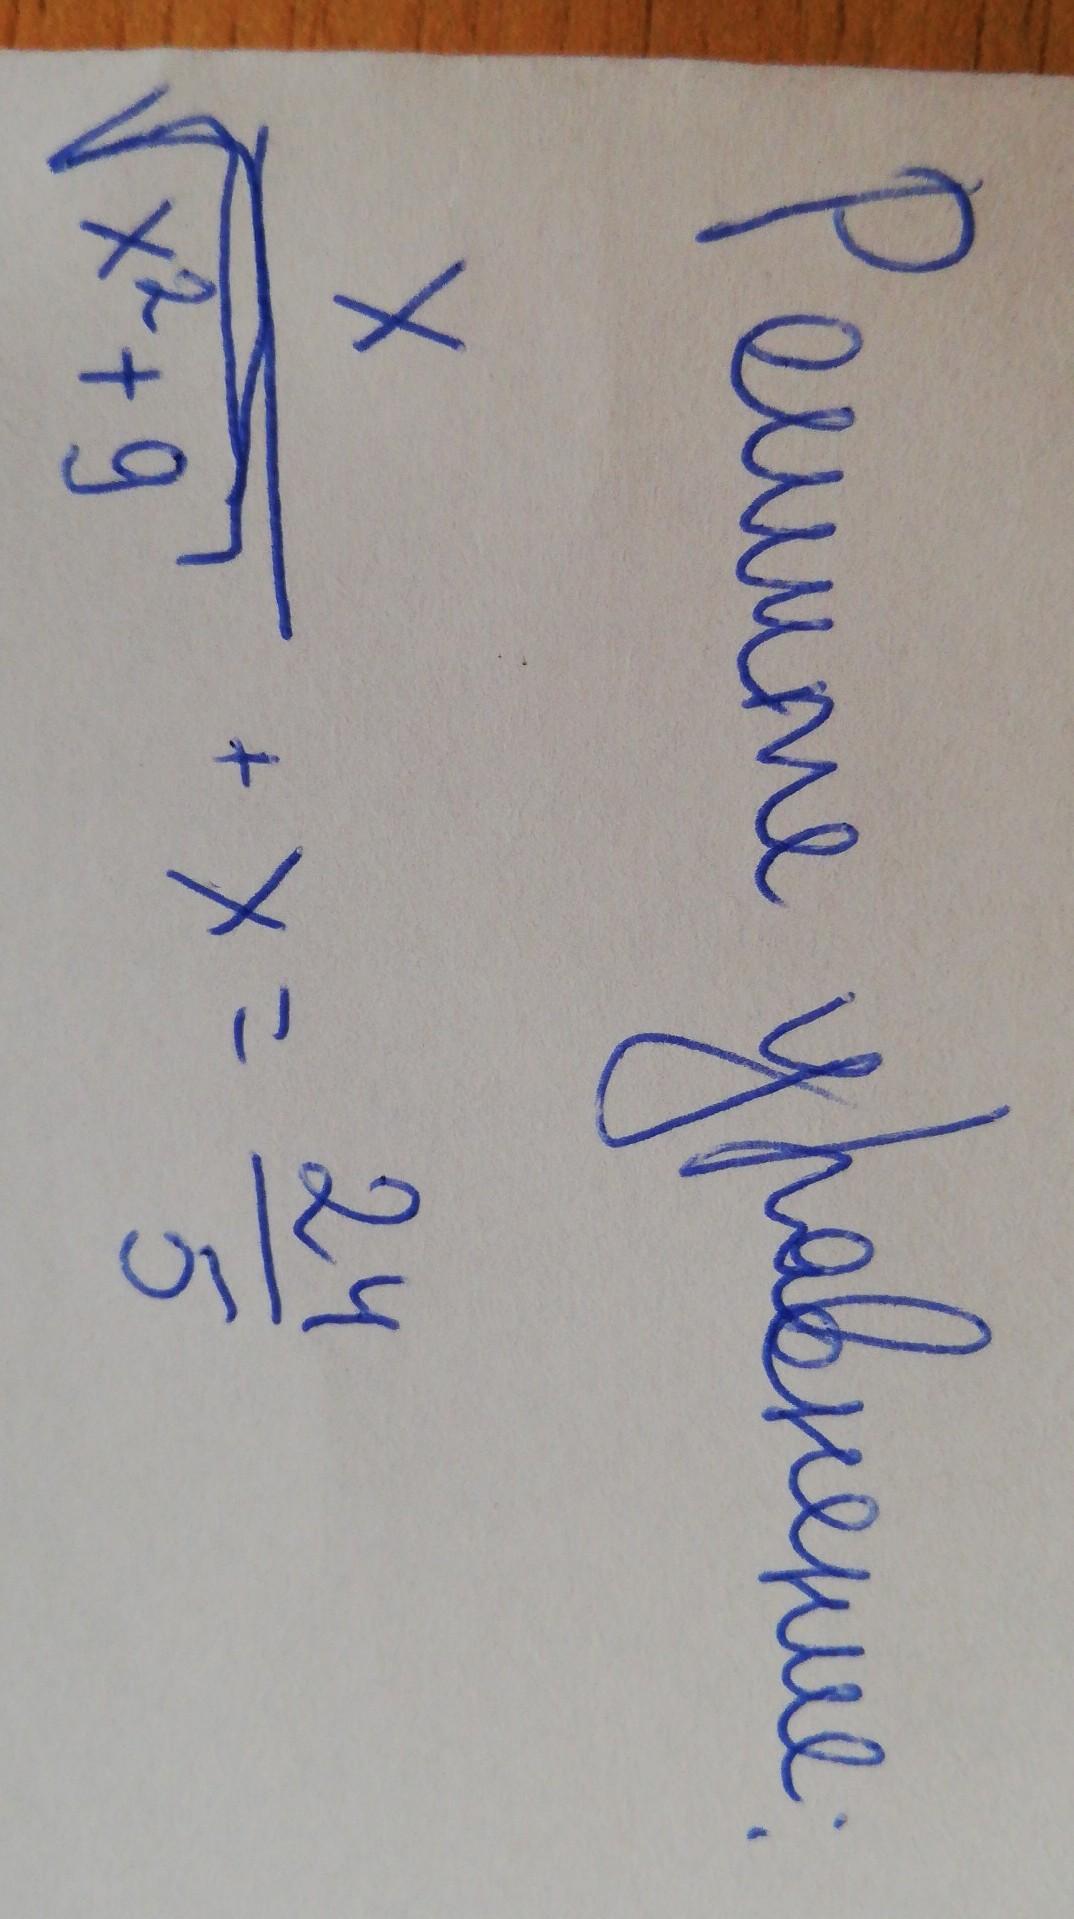 Решите уравнение:
x/√(x²+9) + x = 24/5